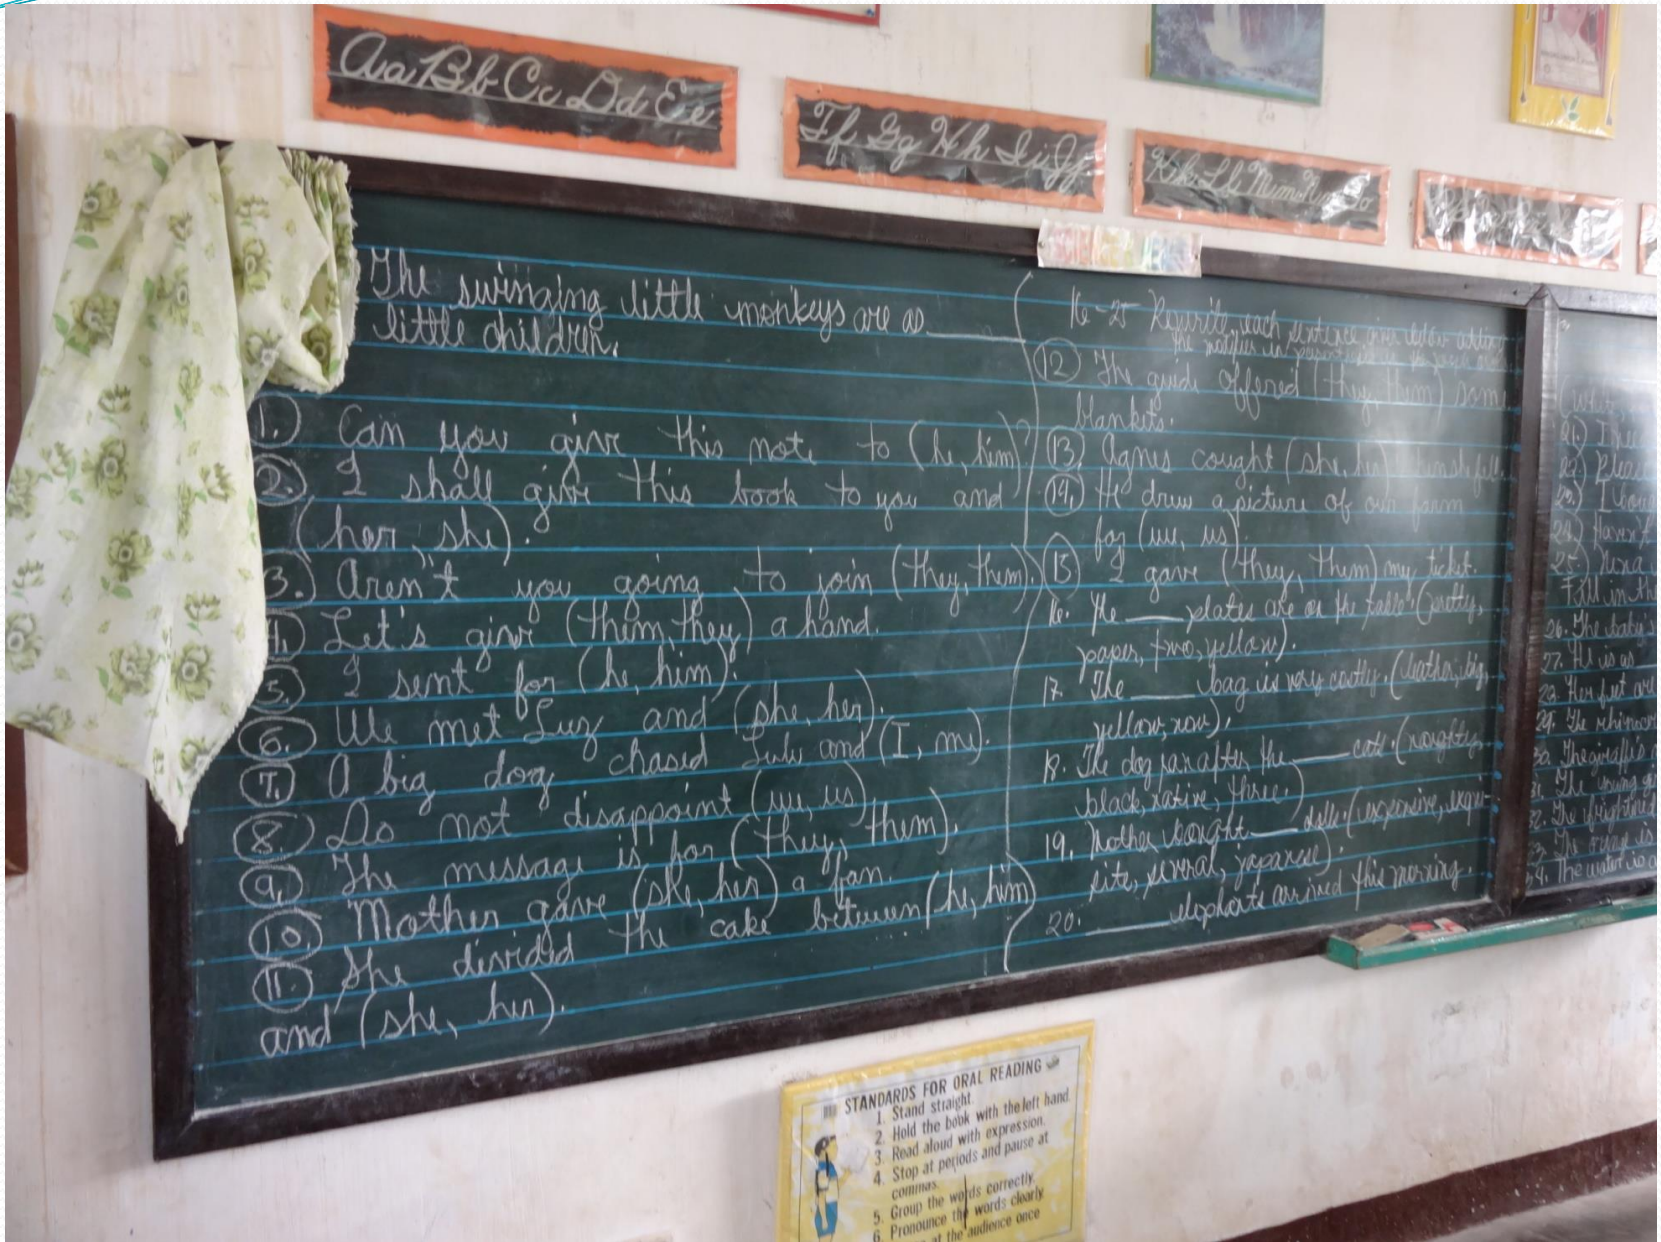 Aa Bb Cc Dd Ee
Ff Gg Hh Ii Jj
Kk Ll Mm Nn Oo
The swinging little monkeys are as ____
little children.
1. Can you give this note to (he, him)?
2. I shall give this book to you and
(her, she).
3. Aren't you going to join (they, them).
4. Let's give (them, they) a hand.
5. I sent for (he, him).
6. We met Luz and (she, her).
7. A big dog chased Lulu and (I, me).
8. Do not disappoint (we, us)
9. The message is for (they, them).
10. Mother gave (she, her) a fan.
11. She divided the cake between (he, him)
and (she, her).
16-25 Rewrite each sentence given below adding
the in the
12 The guide offered (they, them) some
blankets.
13. Agnes caught (she, her)
14. He drew a picture of our farm
for (we, us).
15 I gave (they, them) my ticket.
16. The ____ plates are on the table. (pretty,
paper, two, yellow).
17. The ____ bag is very costly. (leather, big,
yellow, new).
18. The dog ran after the ____ cats. (naughty,
black, native, three.)
19. Mother bought ____ dolls. (expensive, exqui-
site, several, japanese).
20. ____ elephants arrived this morning.
21.)
22.) Please
23.)
24.) Haven't
25.) Nena
Fill in the
26. The baby's
27. He is as
28. Her feet are
29. The
30. The giraffe's
31. The young
32. The frightened
33. The
34. The water is
STANDARDS FOR ORAL READING
1. Stand straight.
2. Hold the book with the left hand.
3. Read aloud with expression.
4. Stop at periods and pause at
commas.
5. Group the words correctly.
6. Pronounce the words clearly
at the audience once